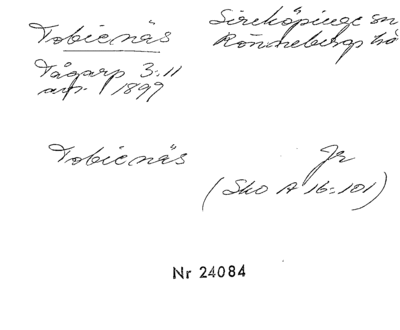 Tobienäs
Sireköpinge sn
Rönnebergs hd
Tågarp 3:11
avs. 1899
Tobienäs
Jr
(Sko A 16:101)
Nr 24084